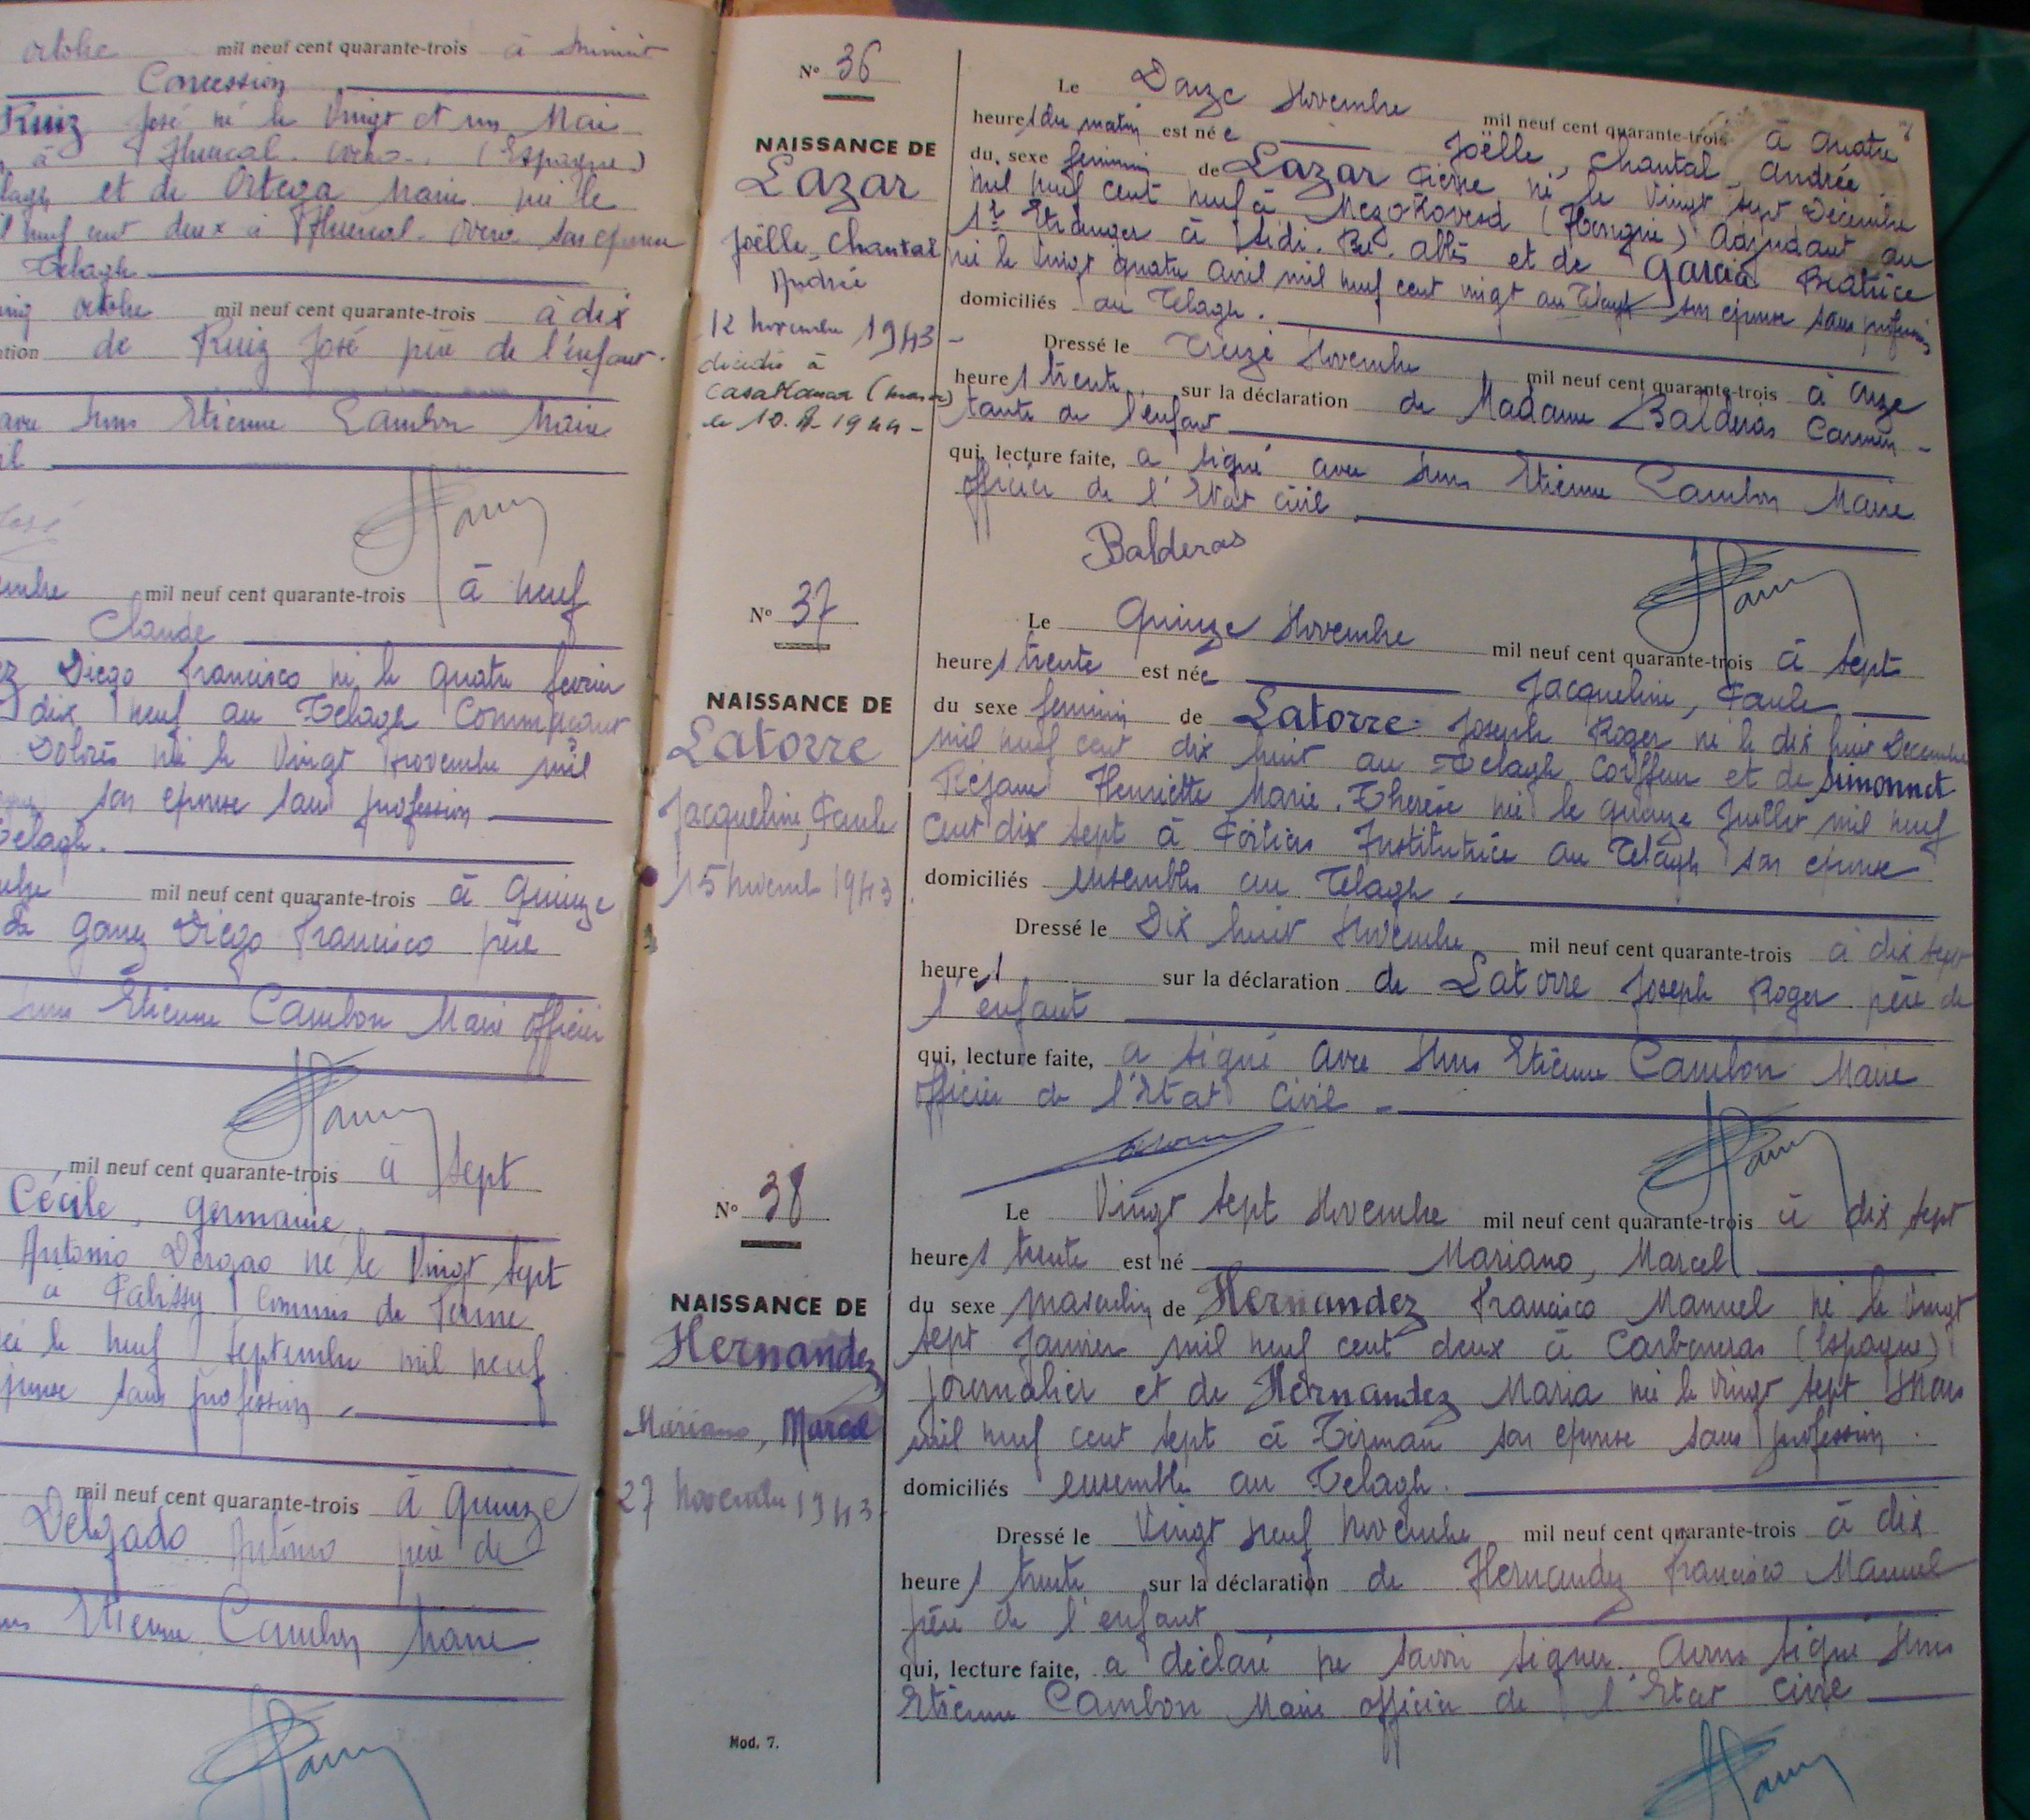 octobre mil neuf cent quarante-trois à minuit
Concession
Ruiz José né le Vingt et un Mai
à (Espagne)
et de Ortega Marie née le
neuf cent deux à son épouse
Telagh
octobre mil neuf cent quarante-trois à dix
de Ruiz José père de l'enfant.
Etienne Cambon Maire
mil neuf cent quarante-trois à neuf
Claude
Diego Francisco né le quatre février
dix neuf au Telagh Commerçant
Dolorès née le Vingt novembre mil
son épouse sans profession
Telagh.
mil neuf cent quarante-trois à quinze
Diego Francisco père
Nous Etienne Cambon Maire officier
mil neuf cent quarante-trois à sept
Cécile, Germaine
Antonio né le Vingt sept
à Palissy Commis de Ferme
le neuf septembre mil neuf
épouse sans profession
mil neuf cent quarante-trois à quinze
Delgado Antonio père de
Etienne Cambon Maire
N° 36
NAISSANCE DE
Lazar
Joëlle, Chantal
Andrée
12 novembre 1943
décédée à
Casablanca (Maroc)
le 10. 1944
Le Douze Novembre mil neuf cent quarante-trois à quatre
heures du matin est née Joëlle, Chantal, Andrée
du sexe féminin de Lazar Pierre né le Vingt sept Décembre
mil neuf cent neuf à (Hongrie) Adjudant au
1er Etranger à Sidi. Bel. Abbès et de Garcia Béatrice
née le Vingt quatre avril mil neuf cent vingt au Telagh son épouse sans profession
domiciliés au Telagh.
Dressé le Treize Novembre mil neuf cent quarante-trois à onze
heures trente sur la déclaration de Madame Balderas Carmen
tante de l'enfant
qui, lecture faite, a signé avec Nous Etienne Cambon Maire
officier de l'Etat Civil
Balderas
N° 37
NAISSANCE DE
Latorre
Jacqueline, Paule
15 novemb 1943
Le Quinze Novembre mil neuf cent quarante-trois à sept
heures trente est née Jacqueline, Paule
du sexe féminin de Latorre Joseph Roger né le dix huit Décembre
mil neuf cent dix huit au Telagh Coiffeur et de Simonnet
Réjane Henriette Marie. Thérèse née le quinze Juillet mil neuf
cent dix sept à Poitiers Institutrice au Telagh son épouse
domiciliés ensembles au Telagh.
Dressé le Dix huit Novembre mil neuf cent quarante-trois à dix sept
heures sur la déclaration de Latorre Joseph Roger père de
l'enfant
qui, lecture faite, a signé avec Nous Etienne Cambon Maire
officier de l'Etat Civil
N° 38
NAISSANCE DE
Hernandez
Mariano, Marcel
27 novembre 1943
Le Vingt sept Novembre mil neuf cent quarante-trois à dix sept
heures trente est né Mariano, Marcel
du sexe masculin de Hernandez Francisco Manuel né le Vingt
sept Janvier mil neuf cent deux à Carboneras (Espagne)
journalier et de Hernandez Maria née le Vingt sept Mars
mil neuf cent sept à Tirman son épouse sans profession.
domiciliés ensemble au Telagh.
Dressé le Vingt neuf novembre mil neuf cent quarante-trois à dix
heures trente sur la déclaration de Hernandez Francisco Manuel
père de l'enfant
qui, lecture faite, a déclaré ne savoir signer. Avons signé Nous
Etienne Cambon Maire officier de l'Etat Civil
Mod. 7.